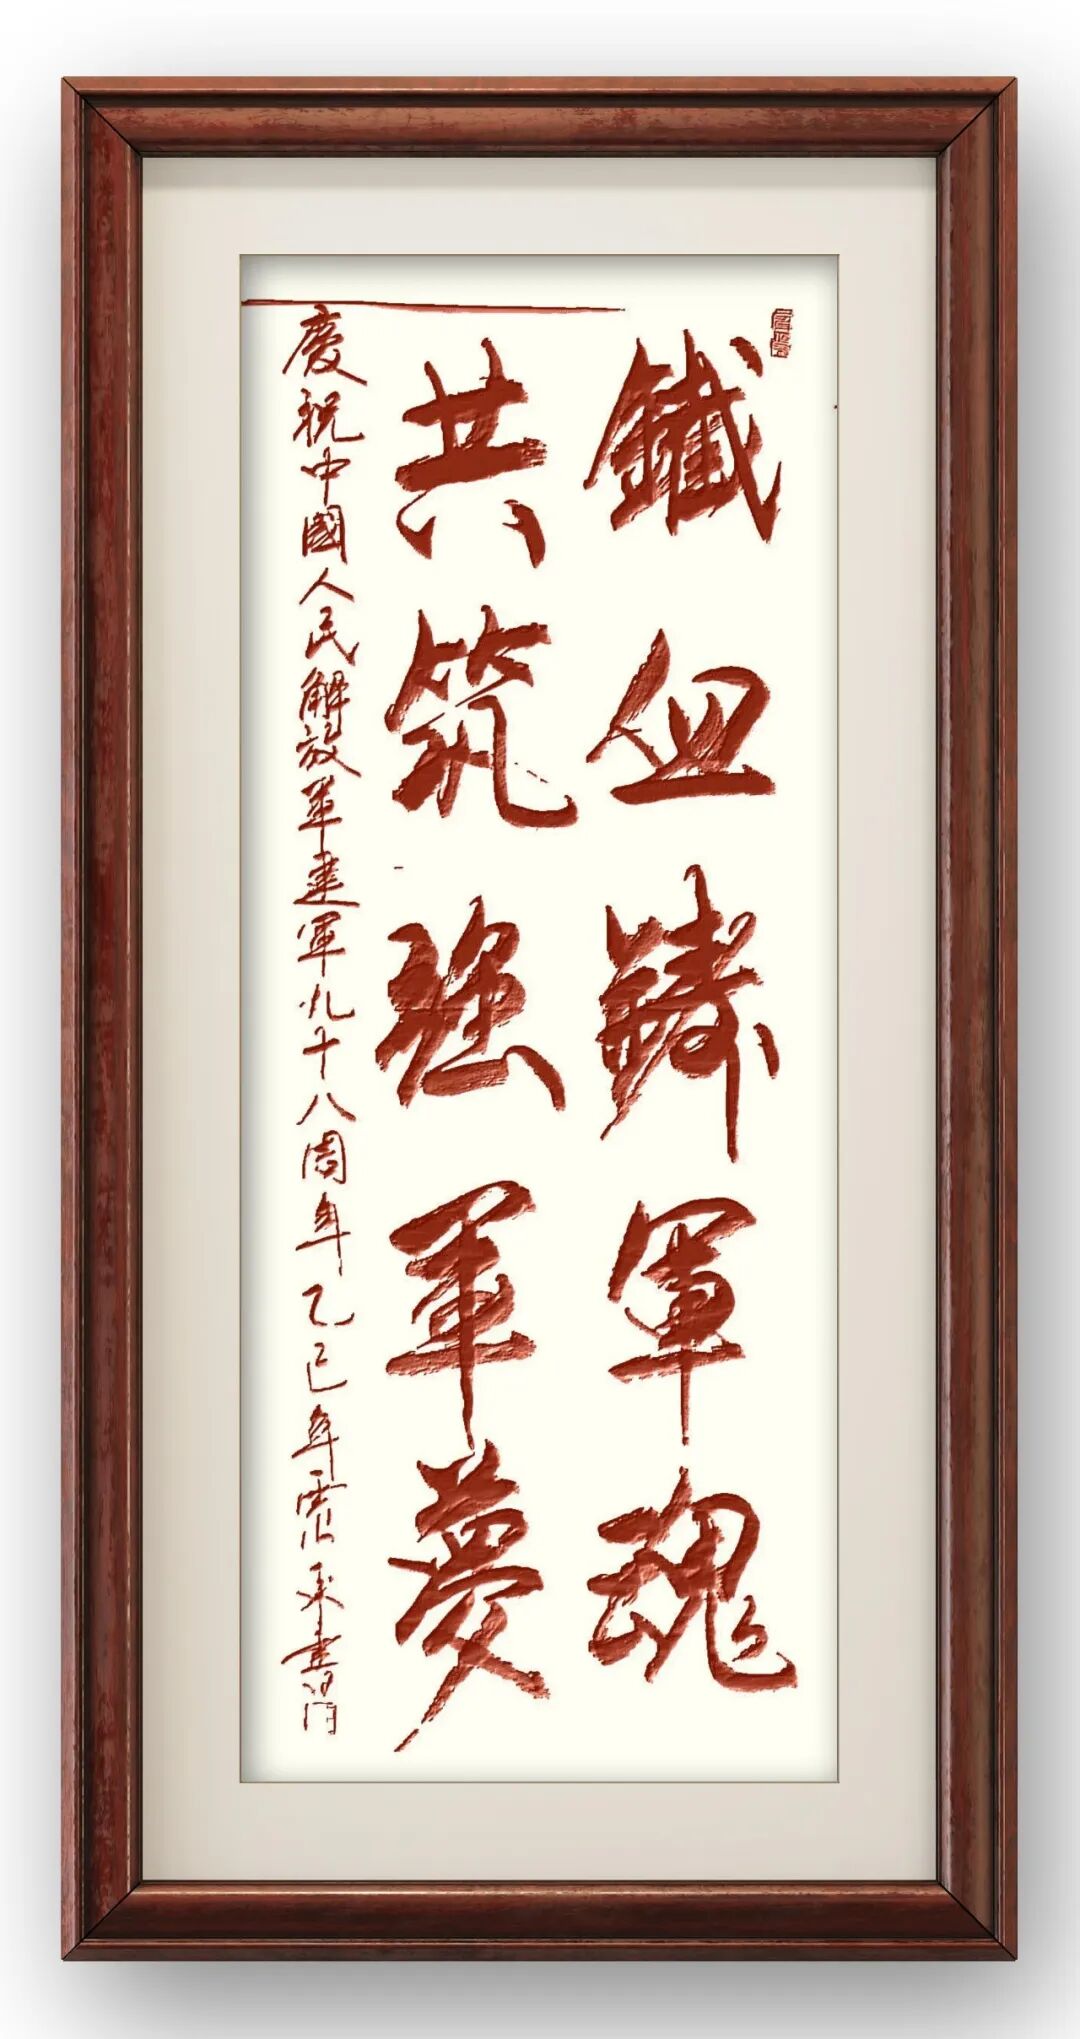 鐵血鑄軍魂
共筑强軍夢
慶祝中國人民解放軍建軍九十八周年乙巳年